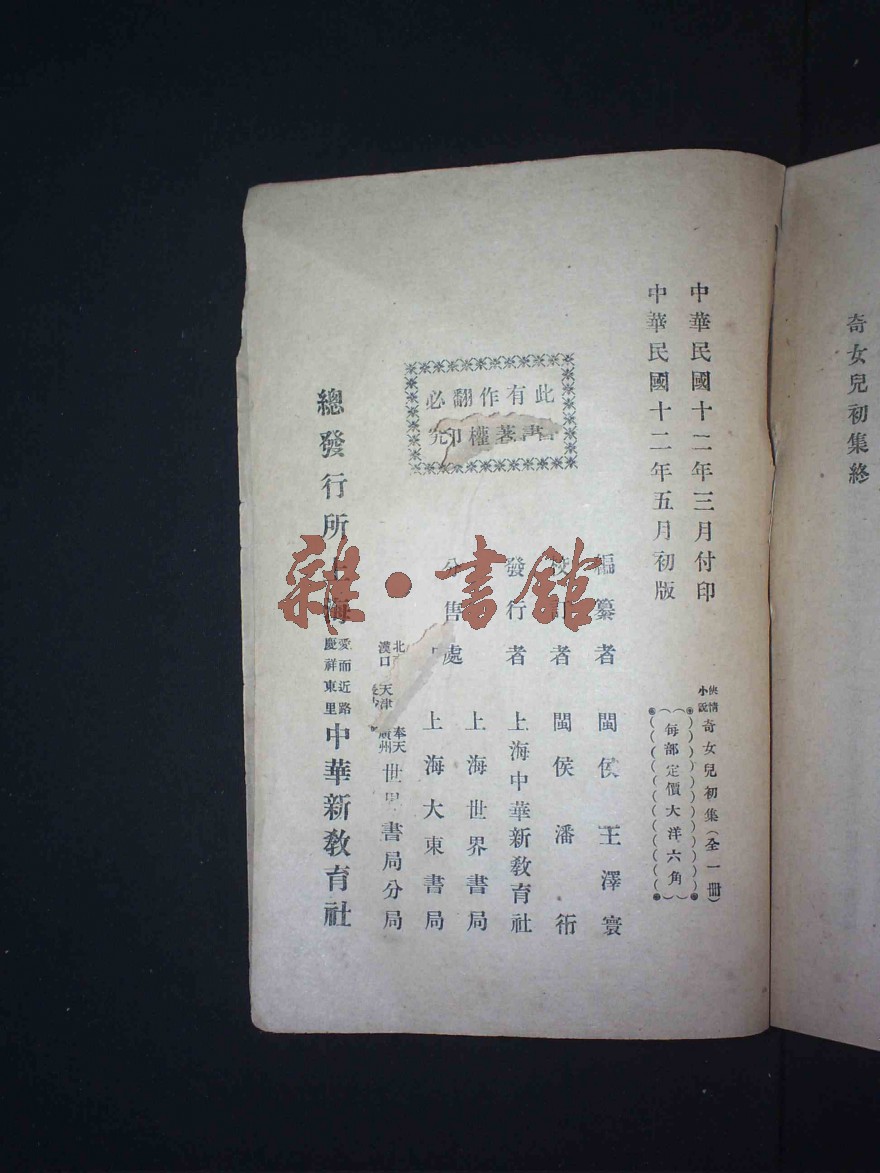 奇女兒初集終
中華民國十二年三月付印
中華民國十二年五月初版
俠情
小說
奇女兒初集(全一冊)
每部定價大洋六角
此書
有著
作權
翻印
必究
編纂者 閩侯 王澤寰
校訂者 閩侯 潘衎
發行者 上海中華新教育社
分售處 上海世界書局
上海大東書局
北 天津 奉天
漢口 廣州
世界書局分局
總發行所上海
愛而近路
慶祥東里
中華新教育社
雜·書館